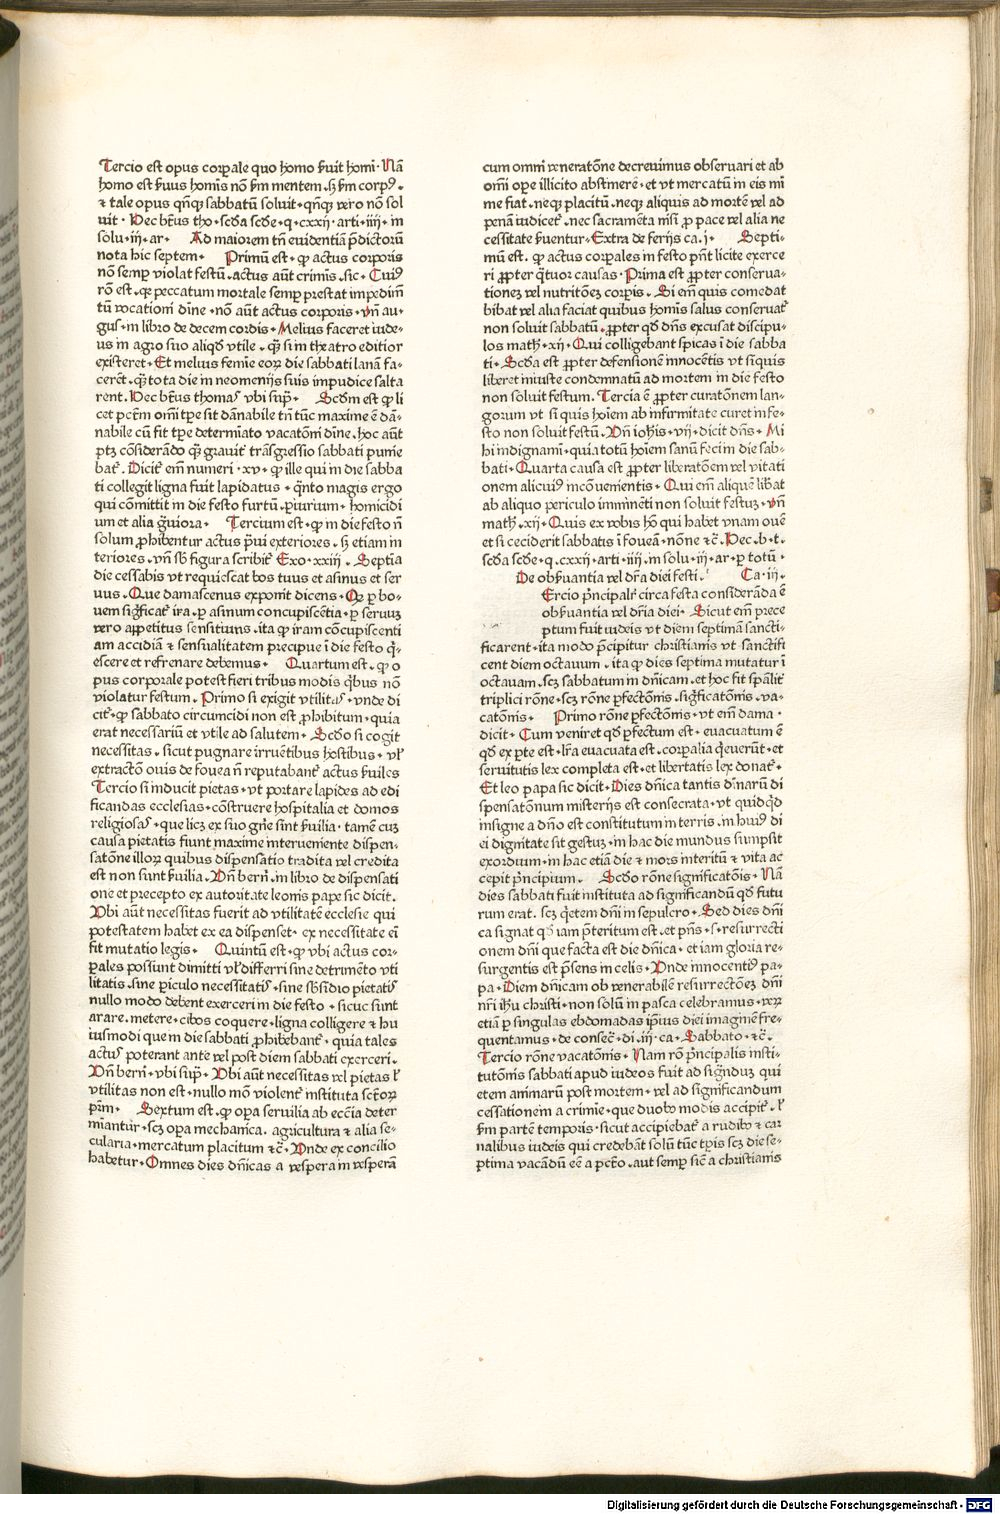 Tercio est opus corꝑale quo homo ẜuit homī · Nã
homo est ẜuus homīs nõ ẜm mentem · sꝫ ẜm corpꝰ ·
⁊ tale opus qñqꝫ sabbatũ soluit · qñqꝫ vero nõ sol
uit · Hec bt̃us tho · scd̃a scd̃e · q · cxxij · arti · iiij · in
solu · iij · ar · Ad maiorem tñ euidentiã p̃dictorũ
nota hic septem · Primũ est · ꝙ actus corporis
nõ semꝑ violat festũ · actus aũt crimīs · sic · Cuiꝰ
rõ est · qꝫ peccatum mortale semꝑ prestat impedim̃
tũ vocationi diuīe · nõ aũt actus corporis · vñ au-
gus · in libro de decem cordis · Melius faceret iude-
us in agro suo aliqd̃ vtile · q̃ꝫ si in theatro editior
existeret · Et melius femīe eoꝝ die sabbati lanã fa-
cerẽt · q̃ꝫ tota die in neomenijs suis impudice salta
rent · Hec bt̃us thomas vbi supꝰ · Scd̃m est ꝙ li
cet pct̃m omī tꝑe sit dãnabile tñ tũc maxime ẽ dã-
nabile cũ fit tꝑe determīato vacatõni dīne · hoc aũt
ptꝫ cõsiderãdo q̃ꝫ grauit̃ trãsgressio sabbati punie
bat̃ · Dicit̃ em̃ numeri · xv · ꝙ ille qui in die sabba
ti collegit ligna fuit lapidatus · q̃nto magis ergo
qui cõmittit in die festo furtũ · ꝑiurium · homicidi
um et alia g̃uiora · Tercium est · ꝙ in die festo ñ
solum ꝓhibentur actus p̃ui exteriores · sꝫ etiam in
teriores · vñ sb̃ figura scribit̃ Exo · xxiij · Septīa
die cessabis vt requiescat bos tuus et asinus et ser
uus · Que damascenus exponit dicens · Qꝫ ꝑ bo-
uem sig̃ficat̃ ira · ꝑ asinum concupiscẽtia · ꝑ seruuꝫ
vero appetitus sensitiuus · ita ꝙ iram cõcupiscenti
am accidiã ⁊ sensualitatem precipue ĩ die festo q̃-
escere et refrenare debemus · Quartum est · ꝙ o
pus corporale potest fieri tribus modis q̃bus nõ
violatur festum · Primo si exigit vtilitas · vnde di
cit̃ · ꝙ sabbato circumcidi non est ꝓhibitum · quia
erat necessariũ et vtile ad salutem · Scd̃o si cogit
necessitas · sicut pugnare irruẽtibus hostibus · vl̃
extractõ ouis de fouea ñ reputabant̃ actus ẜuiles
Tercio si inducit pietas · vt portare lapides ad edi
ficandas ecclesias · cõstruere hospitalia et domos
religiosas · que licꝫ ex suo gñe sint ẜuilia · tamẽ cuꝫ
causa pietatis fiunt maxime interueniente dispen-
satõne illoꝝ quibus dispensatio tradita vel credita
est non sunt ẜuilia · Vñ bern̄ · in libro de dispensati
one et precepto ex autoritate leonis pape sic dicit ·
Vbi aũt necessitas fuerit ad vtilitatẽ ecclesie qui
potestatem habet ex ea dispenset · ex necessitate em̃
fit mutatio legis · Quintũ est · ꝙ vbi actus cor-
ꝑales possunt dimitti vl̃ differri sine detrimẽto vti
litatis · sine ꝑiculo necessitatis · sine sb̃sidio pietatis
nullo modo debent exerceri in die festo · sicuc sunt
arare · metere · cibos coquere · ligna colligere ⁊ hu
iusmodi quem die sabbati ꝓhibebant̃ · quia tales
actus poterant ante vel post diem sabbati exerceri ·
Vñ bern̄ · vbi supꝰ · Vbi aũt necessitas vel pietas ł
vtilitas non est · nullo mõ violent̃ instituta sct̃oꝝ
pr̃m · Sextum est · ꝙ oꝑa seruilia ab ecc̃ia deter
mīantur · scꝫ oꝑa mechanica · agricultura ⁊ alia se-
cularia · mercatum placitum ⁊c̃ · Vnde ex concilio
habetur · Omnes dies dñicas a vespera in vesperã
cum omni veneratõne decreuimus obseruari et ab
omī oꝑe illicito abstinere · et vt mercatũ in eis mī
me fiat · neqꝫ placitũ · neqꝫ aliquis ad mortẽ vel ad
penã iudicet̃ · nec sacramẽta nisi ꝓ pace vel alia ne
cessitate ẜuentur · Extra de ferijs ca · j · Septi-
mũ est · ꝙ actus corꝑales in festo pñt licite exerce
ri ꝓpter q̃tuor causas · Prima est ꝓpter conserua-
tioneꝫ vel nutritõeꝫ corꝑis · Si em̃ quis comedat
bibat vel alia faciat quibus homīs salus conseruat̃
non soluit sabbatũ · ꝓpter qd̃ dñs excusat discipu-
los math̃ · xij · Qui colligebant spicas ĩ die sabba
ti · Scd̃a est ꝓpter defensionẽ innocẽtis vt siquis
liberet iniuste condemnatũ ad mortem in die festo
non soluit festum · Tercia ẽ ꝓpter curatõnem lan-
gorum vt si quis hoĩem ab infirmitate curet in fe-
sto non soluit festũ · Vñ ioh̃is · vij · dicit dñs · Mi
hi indignamī · quia totũ hoĩem sanũ feci in die sab-
bati · Quarta causa est ꝓpter liberatõem vel vitati
onem alicuiꝰ incõuenientis · Qui em̃ aliquẽ lib̃at
ab aliquo periculo imminẽti non soluit festuꝫ · vñ
math̃ · xij · Quis ex vobis hõ qui habet vnam ouẽ
et si ceciderit sabbatis ĩ foueã · nõne ⁊c̃ · Hec · b · t ·
scd̃a scd̃e · q · cxxij · arti · iiij · in solu · iij · ar · ꝑ totũ ·
De obẜuantia vel dr̃a diei festi · Ca · ij ·
Ercio p̃ncipalr̃ circa festa consideranda ẽ
obẜuantia vel dr̃ia diei · Sicut em̃ prece
ptum fuit iudeis vt diem septimã sancti-
ficarent · ita modo p̃cipitur christianis vt sanctifi
cent diem octauum · ita ꝙ dies septima mutatur ĩ
octauam · scꝫ sabbatum in dñicam · et hoc fit sp̃alit̃
triplici rõne · scꝫ rõne ꝑfectõnis · sig̃ficatõnis · va-
catõnis · Primo rõne ꝑfectõnis · vt em̃ dama ·
dicit · Cum venir et qd̃ ꝑfectum est · euacuatum ẽ
qd̃ ex ꝑte est · lr̃a euacuata est · corꝑalia q̃euerũt · et
seruitutis lex completa est · et libertatis lex donat̃ ·
Et leo papa sic dicit · Dies dñica tantis diuinarũ di
spensatõnum misterijs est consecrata · vt quidq̃d
insigne a dño est constitutum in terris · in huiꝰ di
ei dignitate sit gestuꝫ · in hac die mundus sumpsit
exordium · in hac etiã die ⁊ mors interitũ ⁊ vita ac
cepit p̃ncipium · Scd̃o rõne significatõis · Nã
dies sabbati fuit instituta ad significandũ qd̃ futu
rum erat · scꝫ q̃etem dñi in sepulcro · Sed dies dñi
ca signat qd̃ iam p̃teritum est · et pñs · s · resurrecti
onem dñi que facta est die dñica · et iam gloria re-
surgentis est p̃sens in celis · Vnde innocentiꝰ pa-
pa · Diem dñicam ob venerabilẽ resurrectõeꝫ dñi
nr̃i ih̃u christi · non solũ in pasca celebramus · veꝝ
etiã ꝑ singulas ebdomadas ip̃ius diei imaginẽ fre-
quentamus · de consec̃ · di · iij · ca · Sabbato · ⁊c̃ ·
Tercio rõne vacatõnis · Nam rõ p̃ncipalis insti-
tutõnis sabbati apud iudeos fuit ad sig̃nduꝫ qui
etem animarũ post mortem · vel ad significandum
cessationem a crimīe · que duobꝰ modis accipit̃ · ł
ẜm partẽ temporis · sicut accipiebat̃ a rudibꝰ ⁊ car
nalibus iudeis qui credebãt solũ tũc tꝑis scꝫ die se-
ptima vacãdũ eẽ a pct̃o · aut semꝑ sic̃ a christianis
Digitalisierung gefördert durch die Deutsche Forschungsgemeinschaft - DFG